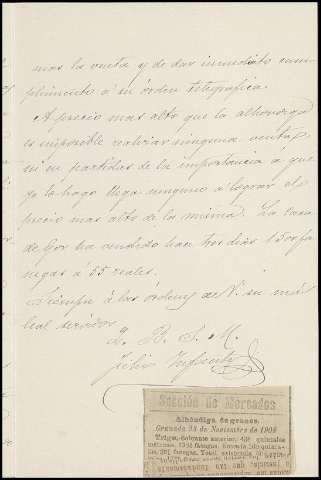 mas la venta y de dar inmediato cum-
plimiento á su órden telegrafica.
A precio mas alto que la alhondiga
es imposible realizar ninguna venta,
ni en partidas de la importancia a que
yo la hago llega ninguno a lograr el
precio mas alto de la misma. La casa
de Gor ha vendido hace tres dias 150 fa
negas á 55 reales.
Siempre á las órdenes de V. su más
leal servidor
Q. B. S. M.
Felix Infante
Sección de Mercados
Alhóndiga de granos.
Granada 24 de Noviembre de 1902
Trigo. Sobrante anterior, quintales
métricos. fanegas. Entrada
fanegas. Total existencia